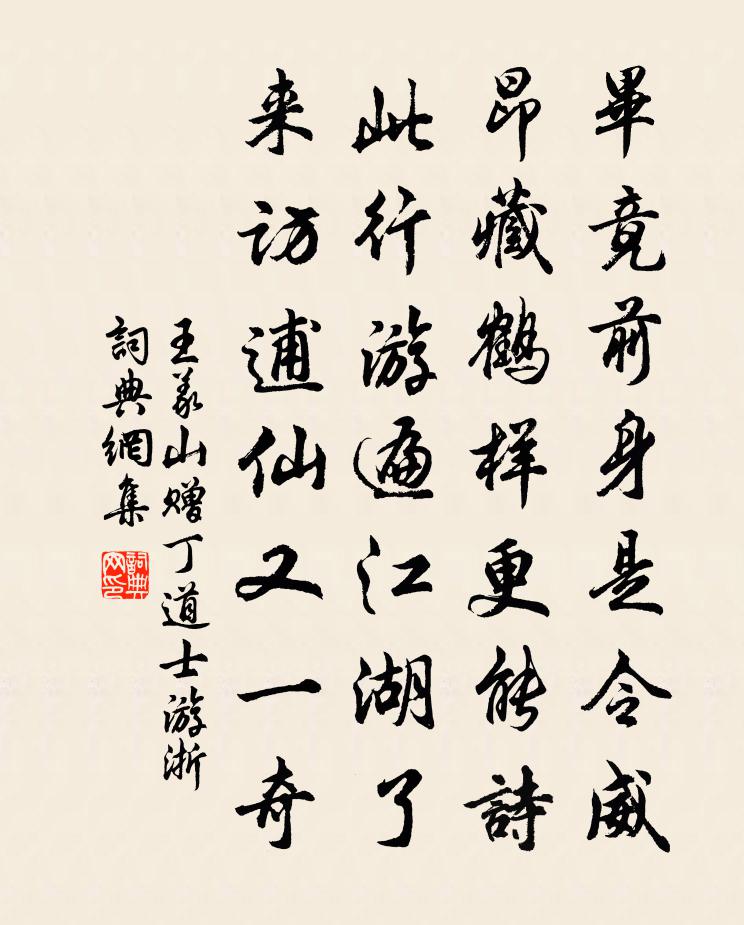 畢竟前身是令威
昂藏鶴样更能詩
此行游遍江湖了
来访逋仙又一奇
王义山赠丁道士游浙
詞典網集
詞典网印